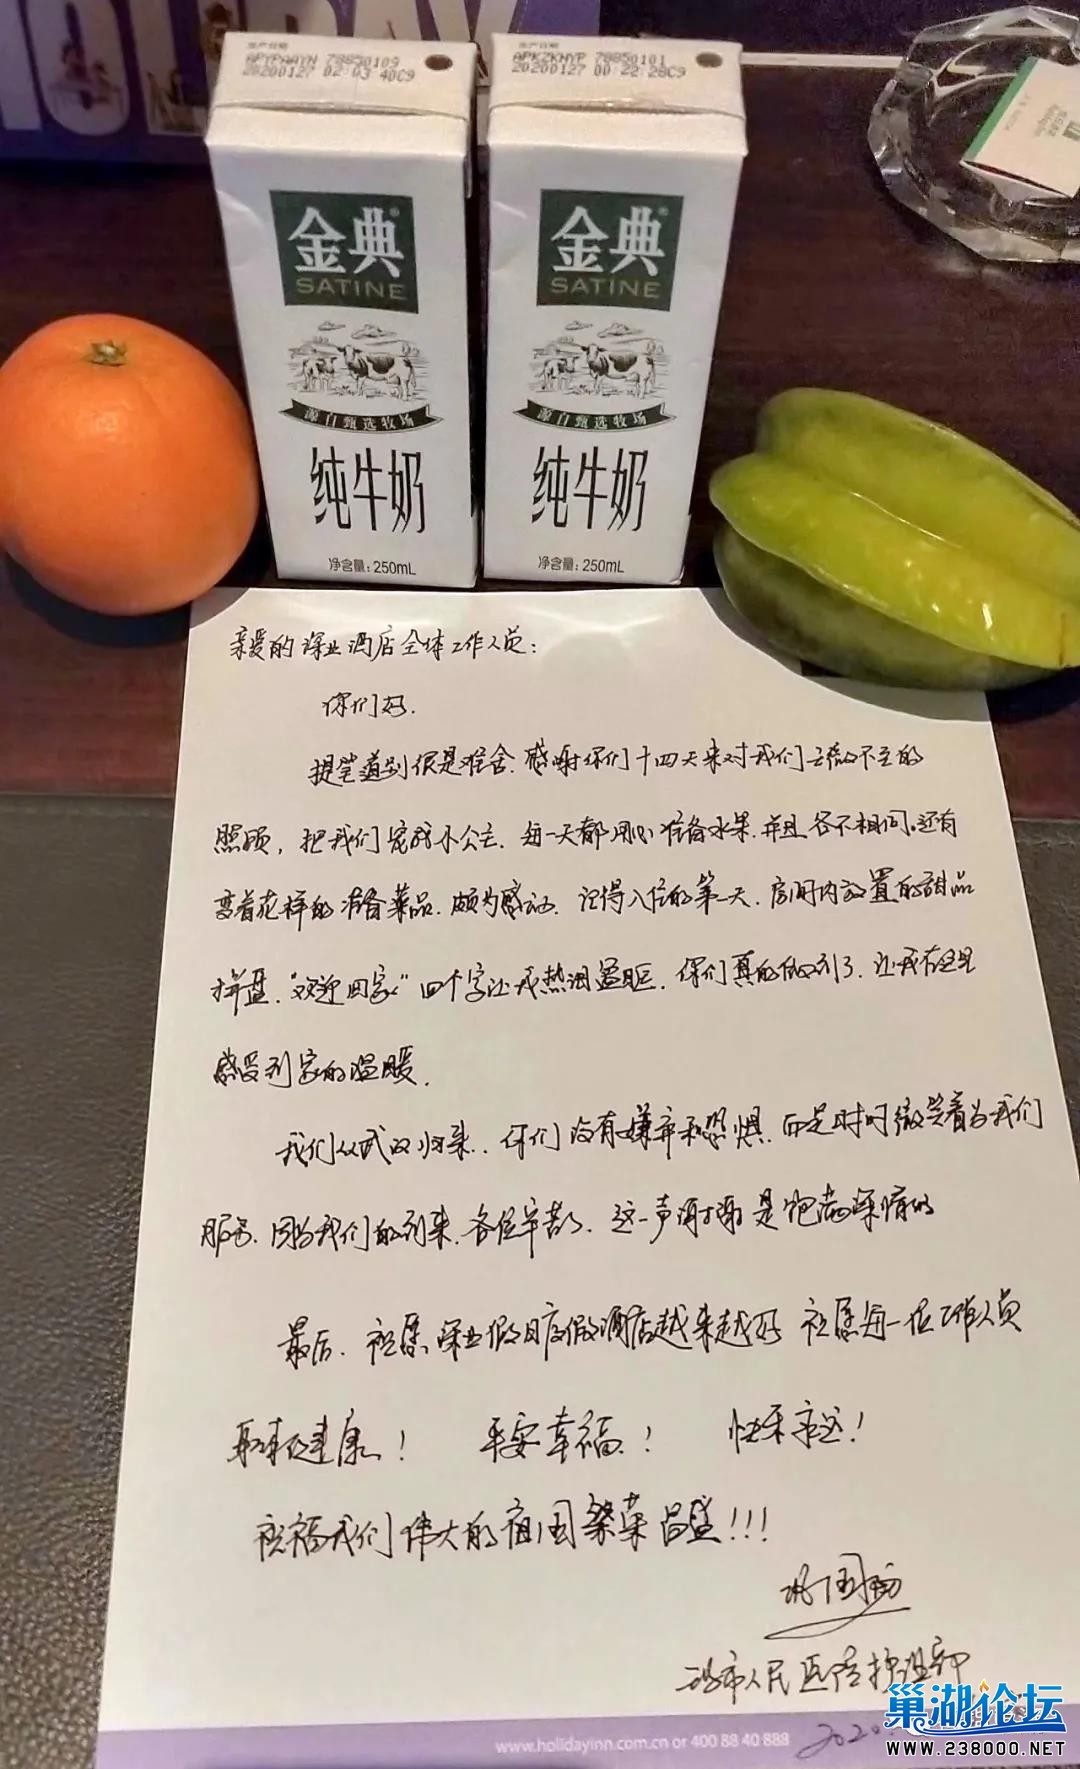 HOLIDAY
生产日期
20200127 02:03 40C9
生产日期
20200127 00:22:28C9
金典®
SATINE
源自甄选牧场
纯牛奶
净含量:250mL
金典®
SATINE
源自甄选牧场
纯牛奶
净含量:250mL
亲爱的深业酒店全体工作人员:
你们好.
提笔道别很是难舍.感谢你们十四天来对我们无微不至的
照顾,把我们宠成小公主.每一天都用心准备水果.并且各不相同。还有
变着花样的准备菜品.颇为感动.记得入住的第一天.房间内放置的甜品
拼盘."欢迎回家"四个字让我热泪盈眶.你们真的做到了.让我在这里
感受到家的温暖.
我们从武汉归来.你们没有嫌弃和恐惧.而是时时微笑着为我们
服务.因为我们的到来.各位辛苦了.这一声谢谢是饱满深情的
最后.祝愿深业假日度假酒店越来越好 祝愿每一位工作人员
身体健康! 平安幸福! 快乐永远!
祝福我们伟大的祖国繁荣昌盛!!!
市人民医院护理部
2020.
www.holidayinn.com.cn or 400 88 40 888
巢湖论坛
WWW.238000.NET